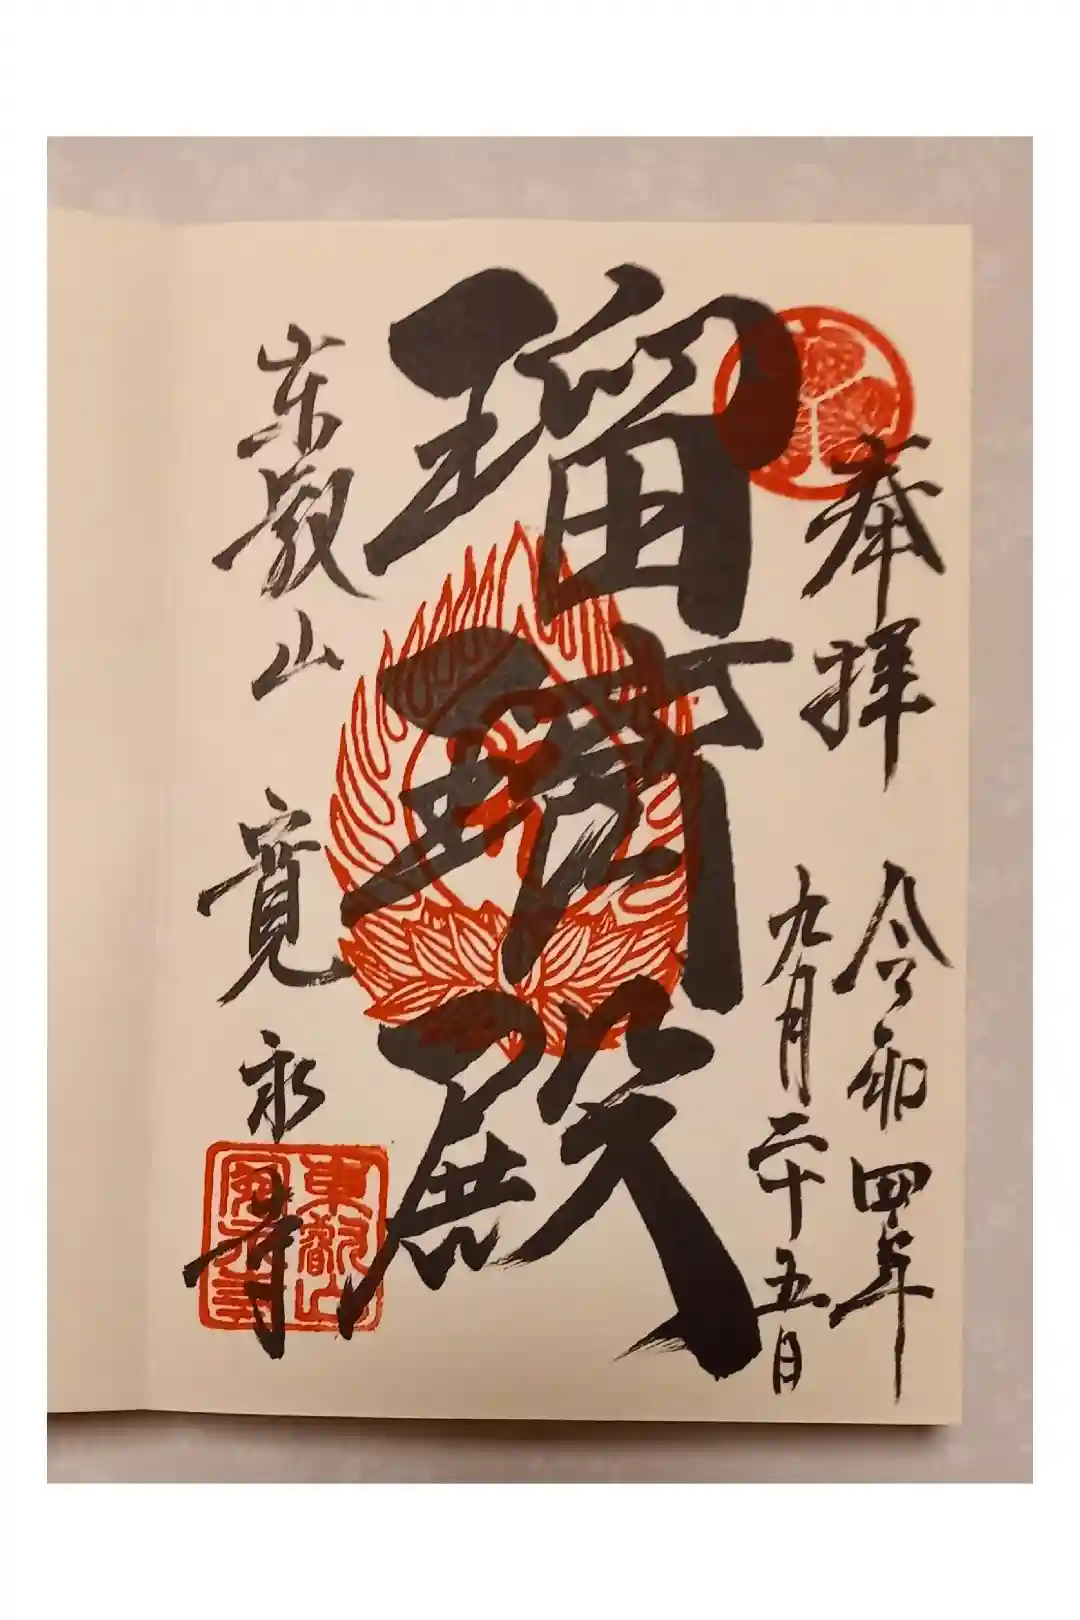 奉拝 令和四年
九月二十五日
瑠璃殿
東叡山 寛永寺
東叡山
寛永寺